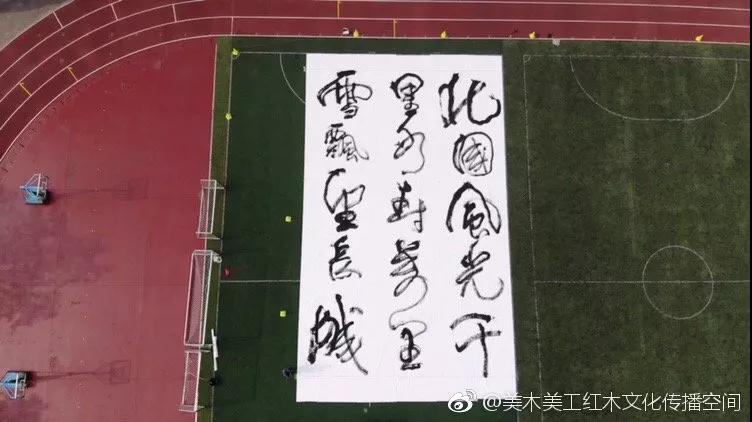 北國風光千
里冰封萬里
雪飄望長城
@美木美工红木文化传播空间